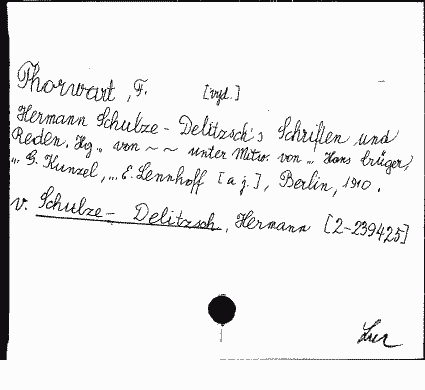 Thorwart, F. [wyd.]
Hermann Schulze-Delitzsch's Schriften und
Reden. Hg. von ~ ~ unter Mitw. von .. Hans Crüger,
.. G. Kunzel, .. E. Lennhoff [a j.], Berlin, 1910.
v. Schulze-Delitzsch, Hermann [2-239425]